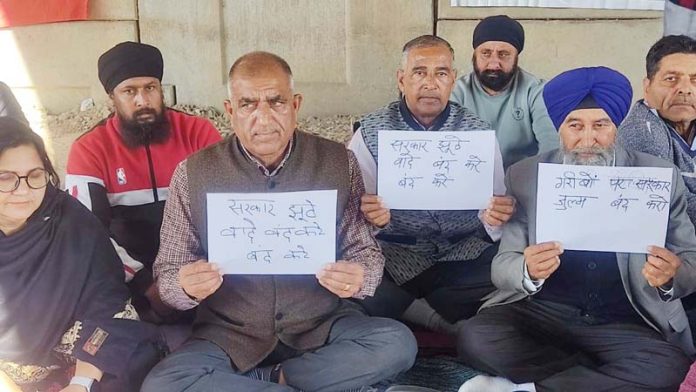 सरकार झूठे
वादे बंद करे
बंद करे
सरकार झूठे
वादे बंद करे
बंद करे
गरीबों पर सरकार
जुल्म बंद करो